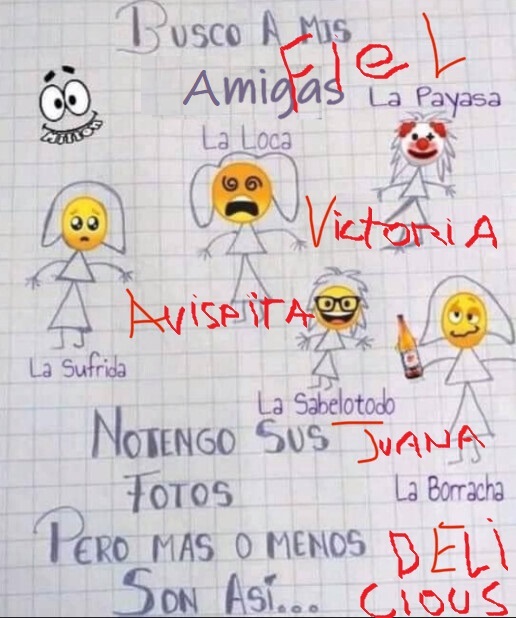 BUSCO A MIS
FIEL
Amigas
La Payasa
La Loca
VictoriA
AvispitA
La Sufrida
La Sabelotodo
NOTENGO SUS
JUANA
FOTOS
La Borracha
PERO MAS O MENOS
DELI
SON ASÍ...
CIOUS